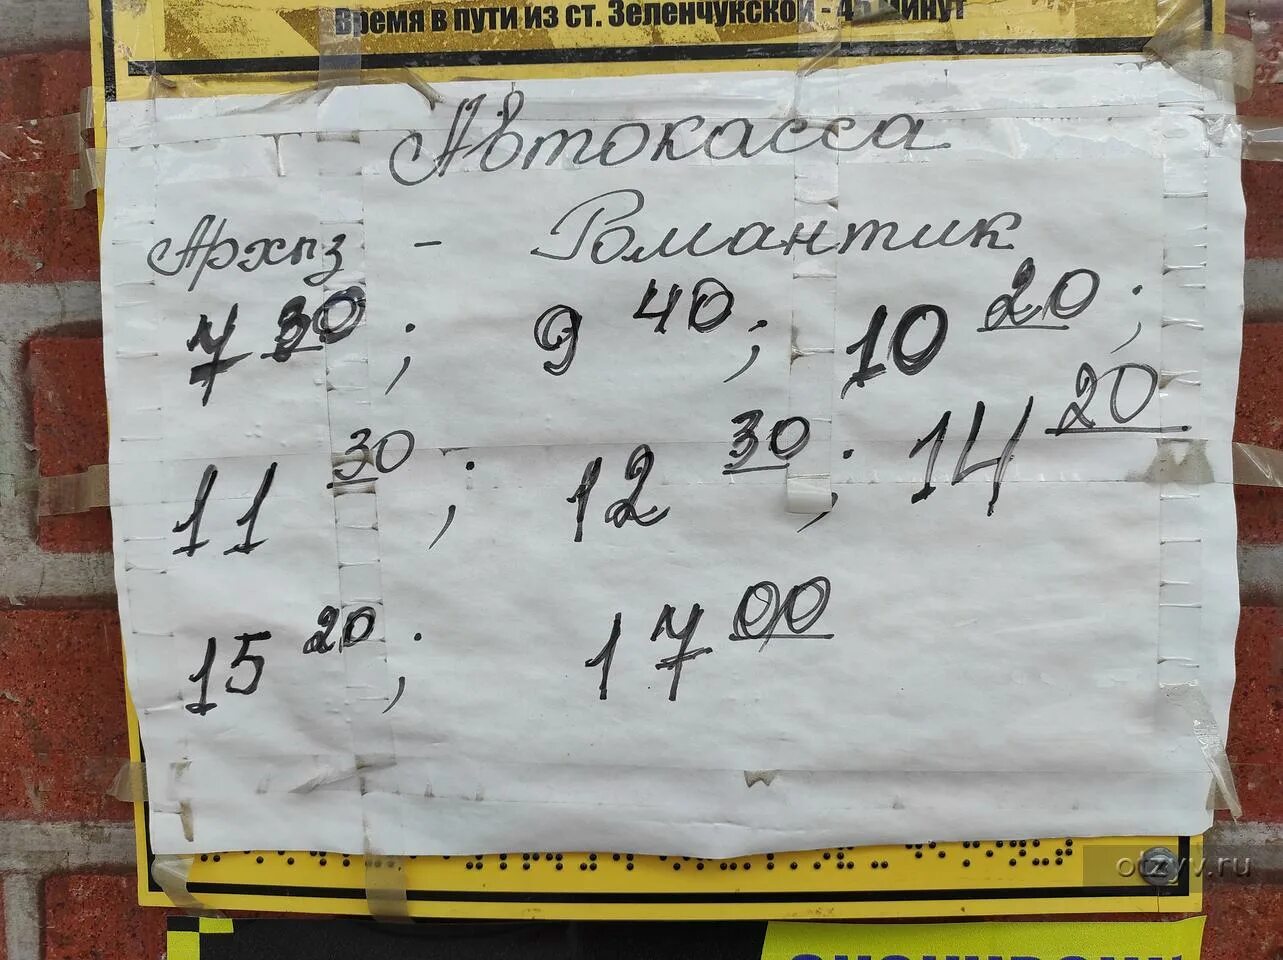 Время в пути из ст. Зеленчукской - 45 минут
Автокасса
Архыз - Романтик
7 30; 9 40; 10 20;
11 30; 12 30; 14 20
15 20; 17 00
otzyv.ru